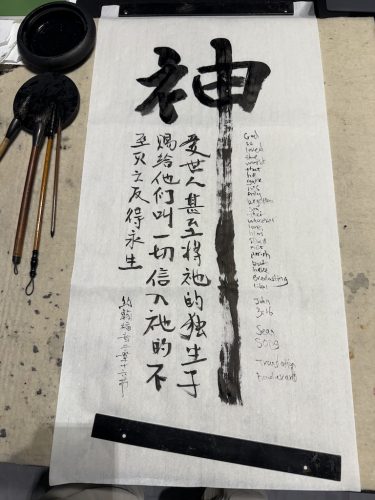 神
爱世人甚至将祂的独生子
赐给他们叫一切信入祂的不
至灭亡反得永生
约翰福音三章十六节
God
so
loved
the
world
that
he
gave
his
Only
begotten
that
him
not
perish
but
have
Everlasting
John
3:16
Sean
Song